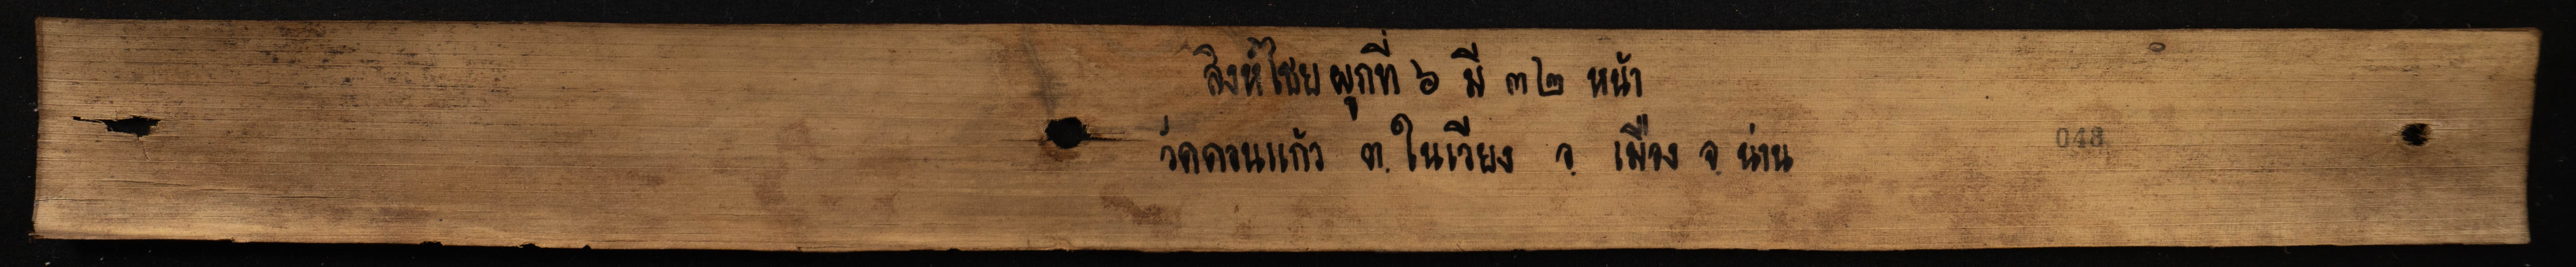 สิงห์ไชย ผูกที่ ๖ มี ๓๒ หน้า
วัดดอนแก้ว ต. ในเวียง อ. เมือง จ. น่าน
048